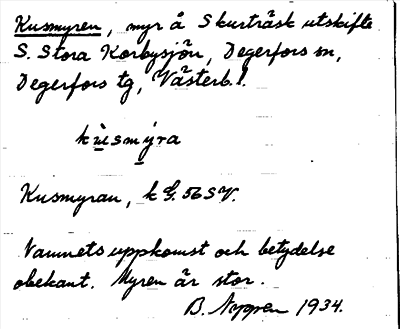 Kusmyren, myr å Skurträsk utskifte
S. Stora Korbysjön, Degerfors sn,
Degerfors tg, Västerb. l.
kùsmýra
Kusmyran, k G. 56 SV.
Namnets uppkomst och betydelse
obekant. Myren är stor.
B. Nygren 1934.